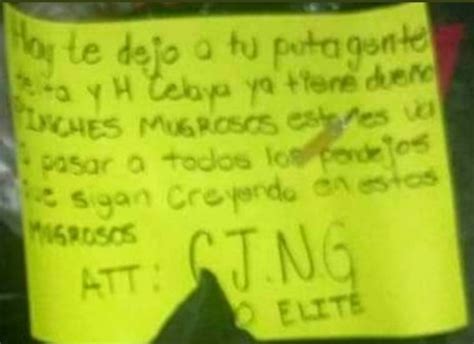 Hay te dejo a tu puta gente
ta y H Celaya ya tiene dueño
PINCHES MUGROSOS esto les va
a pasar a todos los pendejos
que sigan creyendo en estos
MUGROSOS
ATT: CJ.N.G
O ELITE